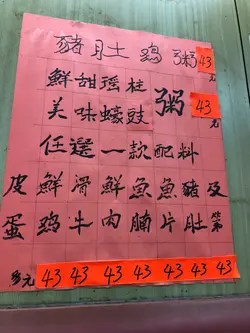 豬肚鷄粥 43元
鮮甜瑤柱
美味蠔豉
粥 43元
任選一款配料
皮蛋
鮮鷄
滑牛
鮮肉
魚腩
魚片
豬肚
及第
43 43 43 43 43 43 43